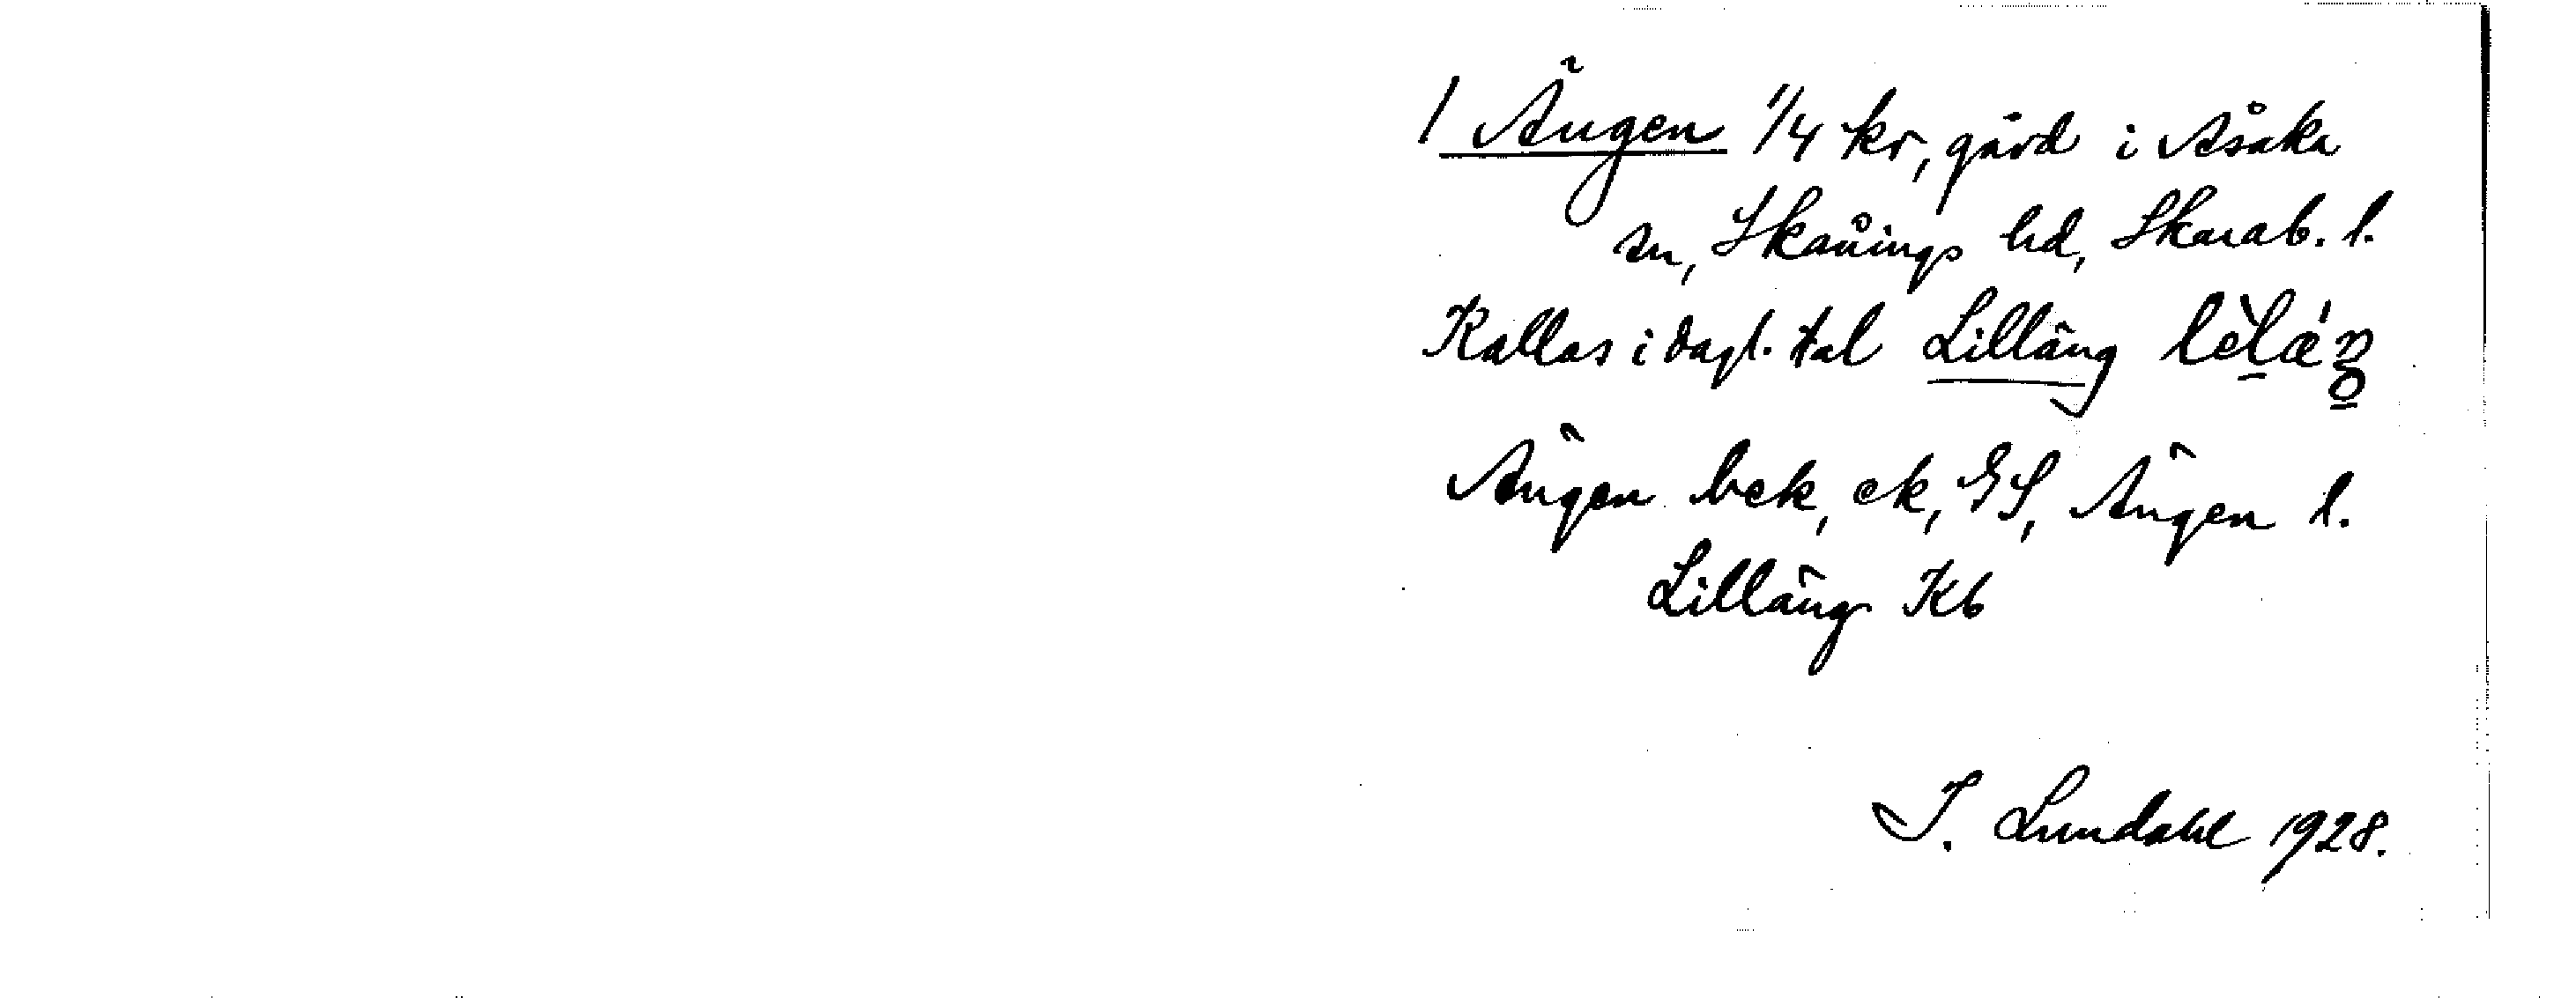 1 Ängen 1/4 kr, gård i Åsaka
sn, Skånings hd, Skarab. l.
Kallas i dagl. tal Lilläng
Ängen bek, ek, GS, Ängen l.
Lilläng Kb
I. Lundahl 1928.